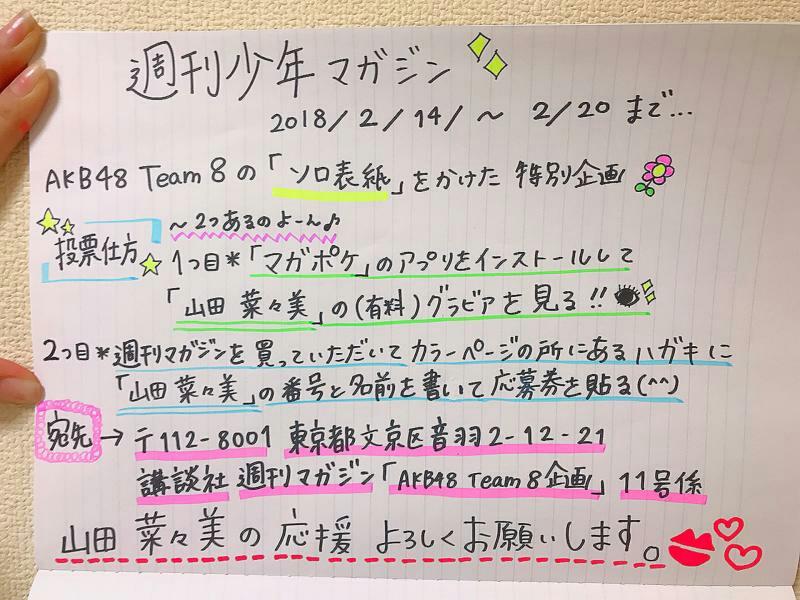 週刊少年マガジン
2018/2/14/～ 2/20 まで...
AKB48 Team 8 の「ソロ表紙」をかけた 特別企画
投票仕方
～2つあるのよーん♪
1つ目*「マガポケ」のアプリをインストールして
「山田 菜々美」の(有料)グラビアを見る!!
2つ目*週刊マガジンを買っていただいてカラーページの所にあるハガキに
「山田 菜々美」の番号と名前を書いて応募券を貼る(^^)
宛先→〒112-8001 東京都文京区音羽2-12-21
講談社 週刊マガジン「AKB48 Team 8企画」11号係
山田 菜々美の応援 よろしくお願いします。